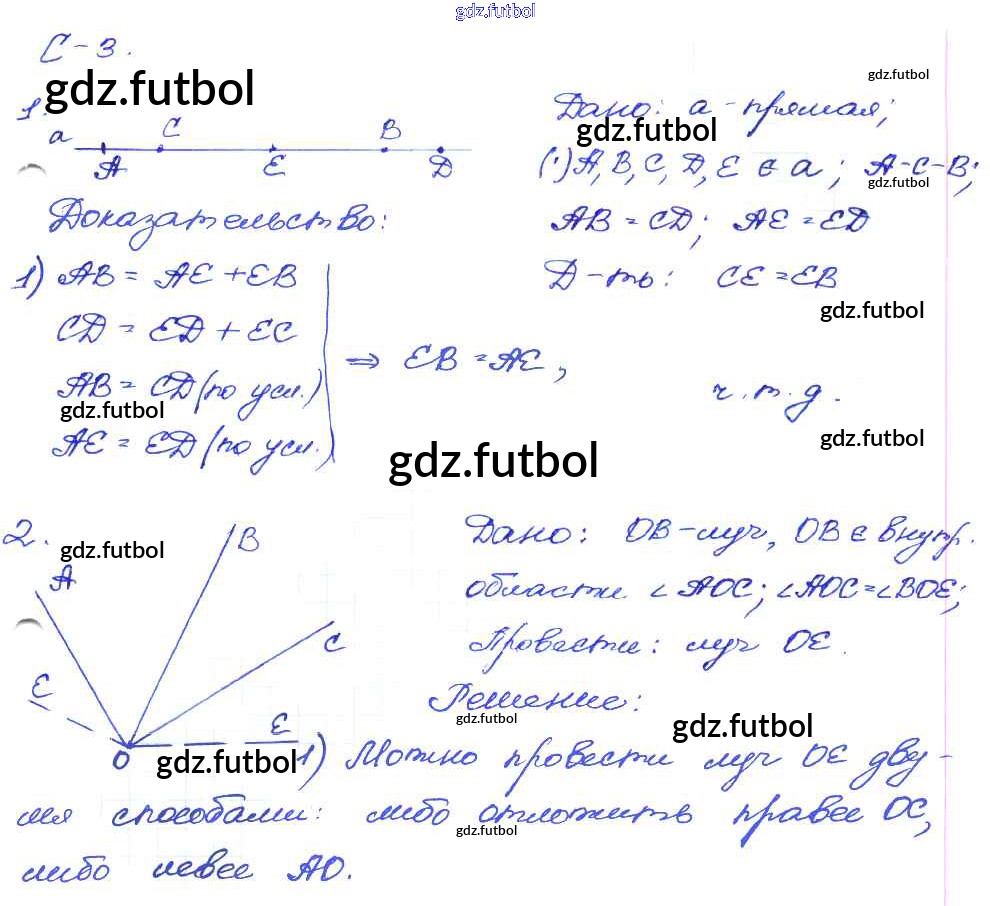 gdz.futbol
С-3.
gdz.futbol
gdz.futbol
1.
a
C
B
A
E
D
Дано: a - прямая;
gdz.futbol
(·) A, B, C, D, E ∈ a; A-C-B;
gdz.futbol
AB = CD; AE = ED
Д-ть: CE = EB
gdz.futbol
Доказательство:
1) AB = AE + EB
CD = ED + EC
AB = CD (по усл.)
gdz.futbol
AE = ED (по усл.)
⇒ EB = AE,
ч.т.д.
gdz.futbol
gdz.futbol
2.
gdz.futbol
A
B
C
E
E
O
Дано: OB - луч, OB ∈ внутр.
области ∠AOC; ∠AOC = ∠BOE;
Провести: луч OE.
Решение:
gdz.futbol
gdz.futbol
gdz.futbol
1) Можно провести луч OE дву-
мя способами: либо отложить правее OC,
gdz.futbol
либо левее AO.